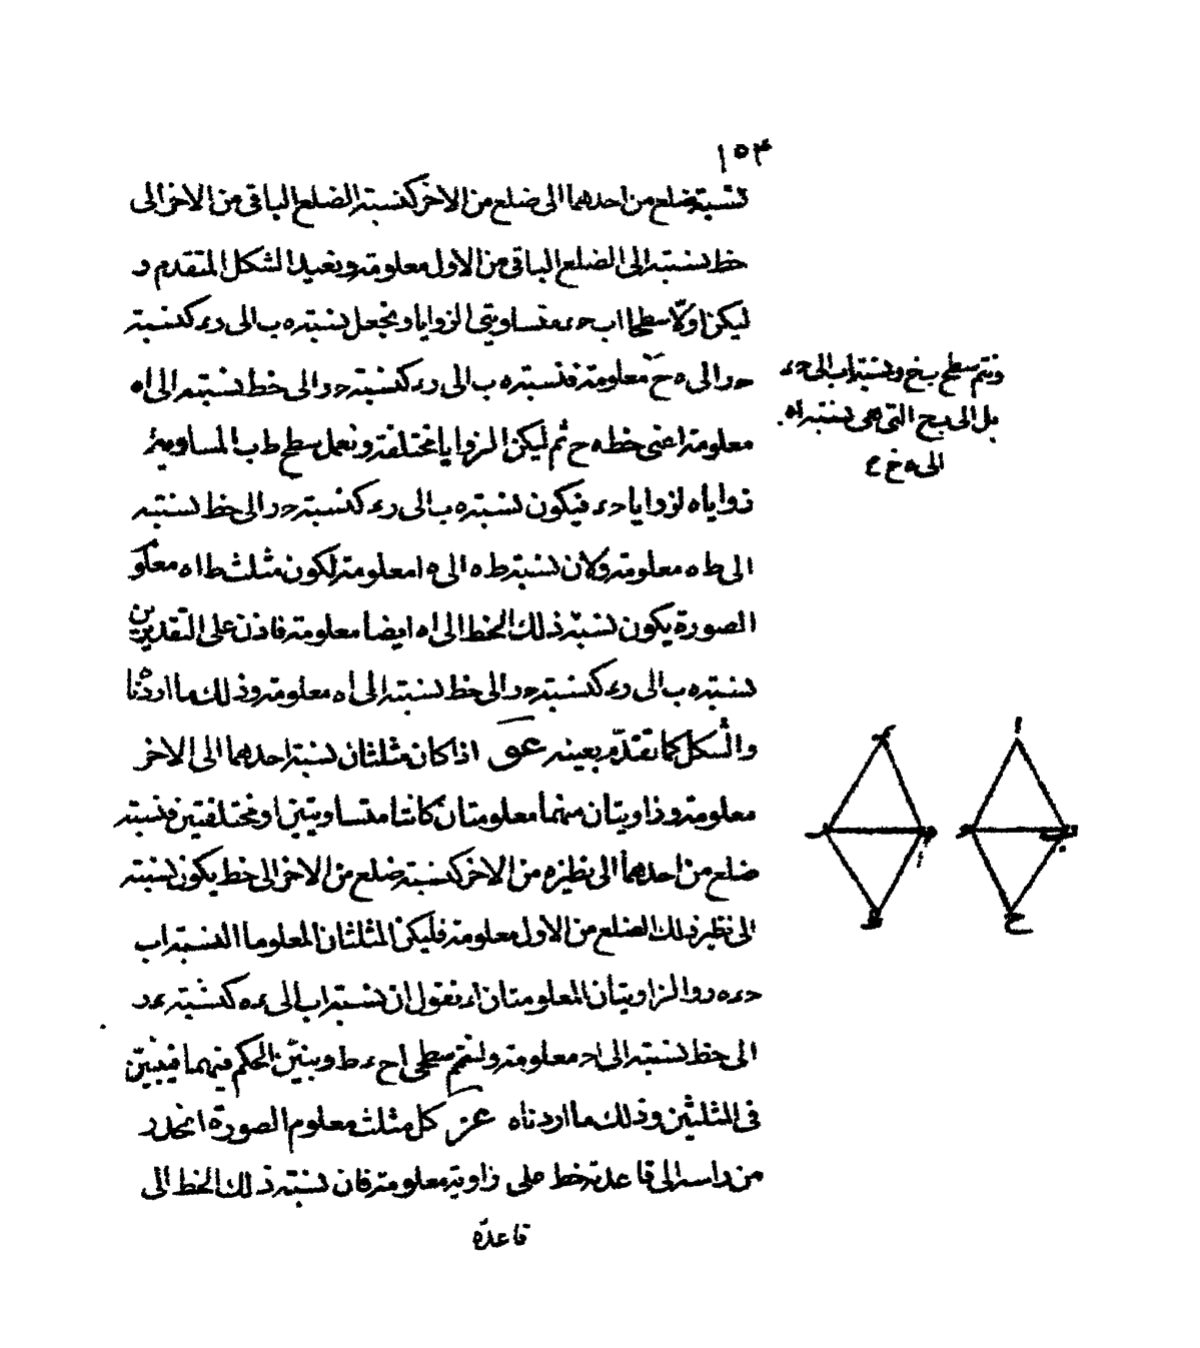 ١٥۴
نسبة ضلع من احدهما الى ضلع من الاخر كنسبة الضلع الباقى من الاخر الى
خط نسبته الى الضلع الباقى من الاول معلومة ونعيد الشكل المتقدم و
ليكن اولّا سطحا اب حء متساويتى الزوايا ونجعل نسبة ه ب الى رء كنسبة
حر الى ه ح معلومة فنسبة ه ب الى رء كنسبة حر الى خط نسبته الى اه
معلومة اعنى خط ه ح ثم ليكن الزوايا مختلفة ونعمل سطح ط ب المساوية
زواياه لزوايا حء فيكون نسبة ه ب الى رء كنسبة حر الى خط نسبته
الى ط ه معلومة ولان نسبة ط ه الى ه ا معلومة لكون مثلث ط ا ه معلو
الصورة يكون نسبة ذلك الخط الى اه ايضا معلومة فاذن على التقديرين
نسبة ه ب الى رء كنسبة حر الى خط نسبته الى اه معلومة وذلك ما اردناه
والشكل كما تقدّم بعينه عو اذا كان مثلثان نسبة احدهما الى الاخر
معلومة وزاويتان منهما معلومتان كانتا متساويتين او مختلفتين فنسبة
ضلع من احدهما الى نظيره من الاخر كنسبة ضلع من الاخر الى خط يكون نسبته
الى نظير ذلك الضلع من الاول معلومة فليكن المثلثان المعلوما النسبة اب
حء ه ر والزاويتان المعلومتان اء نقول ان نسبة اب الى ء ه كنسبة ء ر
الى خط نسبته الى احـ معلومة ولنتمّ سطحى اح ء ط ونبيّن الحكم فيهما فيتبيّن
فى المثلثين وذلك ما اردناه عز كل مثلث معلوم الصورة انحدر
من راسه الى قاعدته خط على زاوية معلومة فان نسبة ذلك الخط الى
قاعدة
ونتم سطح ب خ ونسبة اب الى حء
بل الى ب ح التى هى نسبة اه
الى ه خ ع
ا
ب
ح
ر
ط